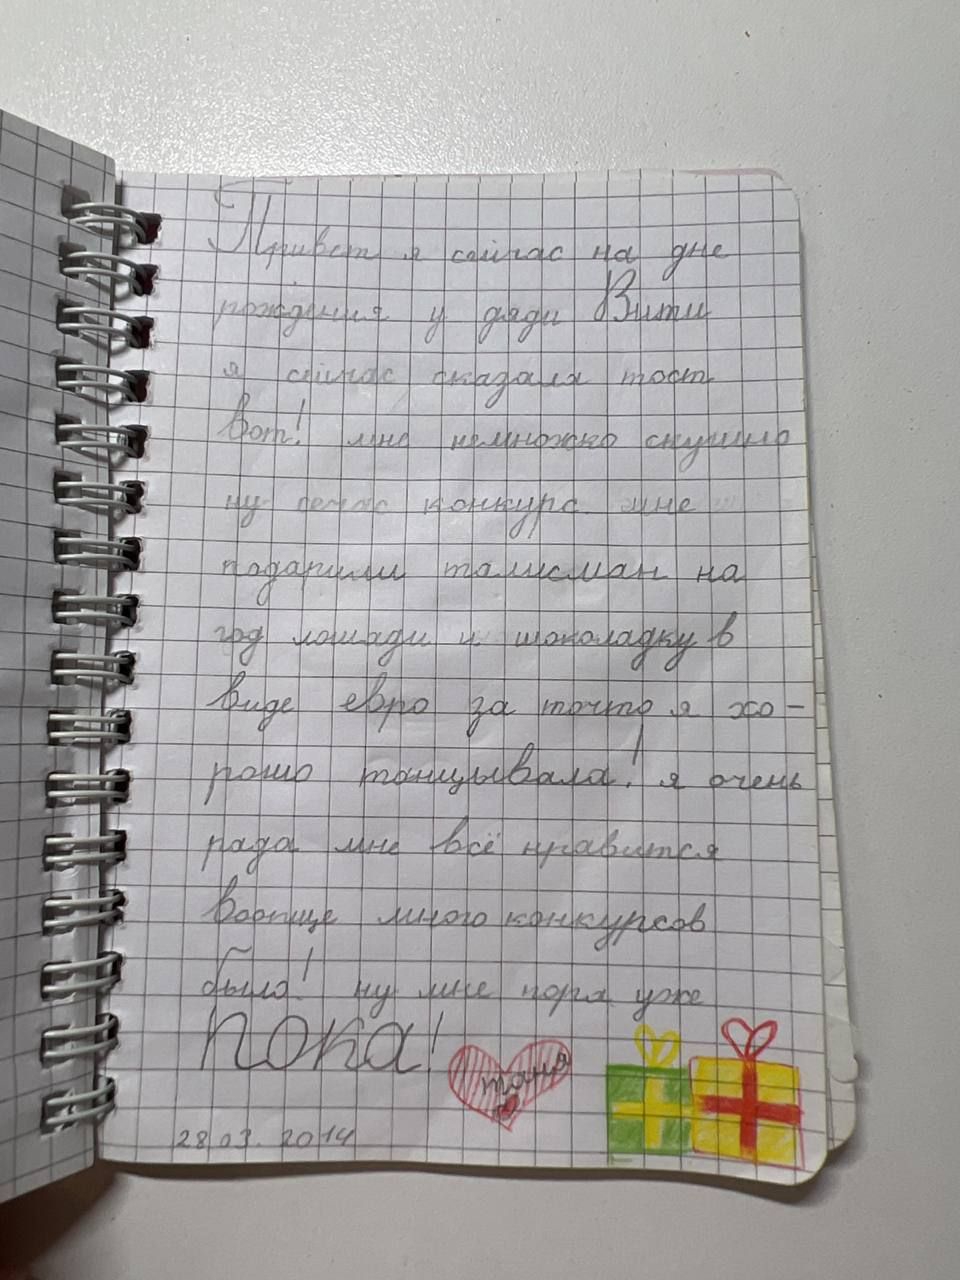 Привет я сейчас на дне
рождения у дяди Вити
я сейчас сказала тост
вот! мне немножко скучно
ну конкурс мне
подарили талисман на
год лошади и шоколадку в
виде евро за точто я хо-
рошо танцывала! я очень
рада мне всё нравится
вообще много конкурсов
было! ну мне пора уже
пока!
таня
28 03. 2014